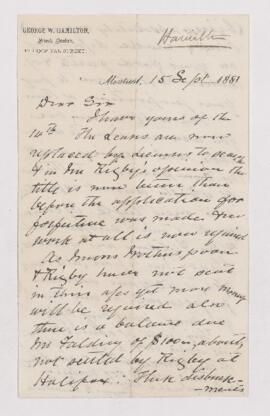 GEORGE W. HAMILTON,
Stock Broker,
HOSPITAL STREET.
Hamilton
Montreal, 15 Sept 1881
Dear Sir
I have yours of the
14th The Leases are now
replaced by Licenses to search
& in Mr Rigby's opinion the
title is now better than
before the application for
forfeiture was made. New
work at all is now required
As Messrs Wotherspoon
& Rigby have not sent
in their a/cs yet more money
will be required also
there is a balance due
Mr Falding of $100, about,
not settled by Rigby at
Halifax: Their disburse-
ments